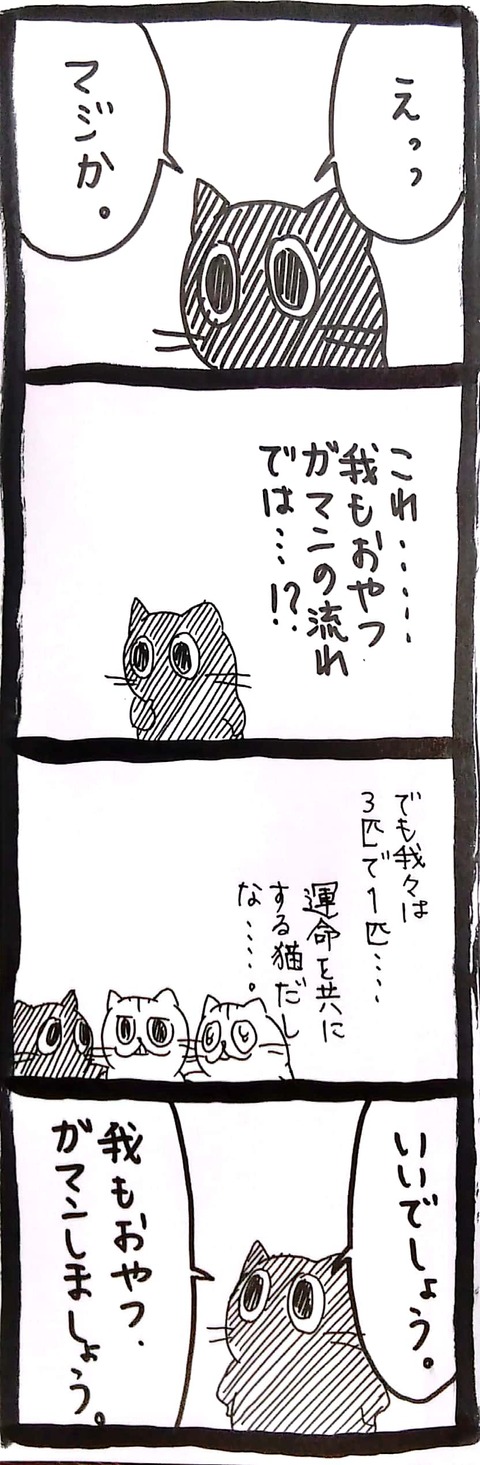 えっっ
マジか。
これ……
我もおやつ
ガマンの流れ
では…!?
でも我々は
3匹で1匹……
運命を共に
する猫だし
な……。
いいでしょう。
我もおやつ、
ガマンしましょう。